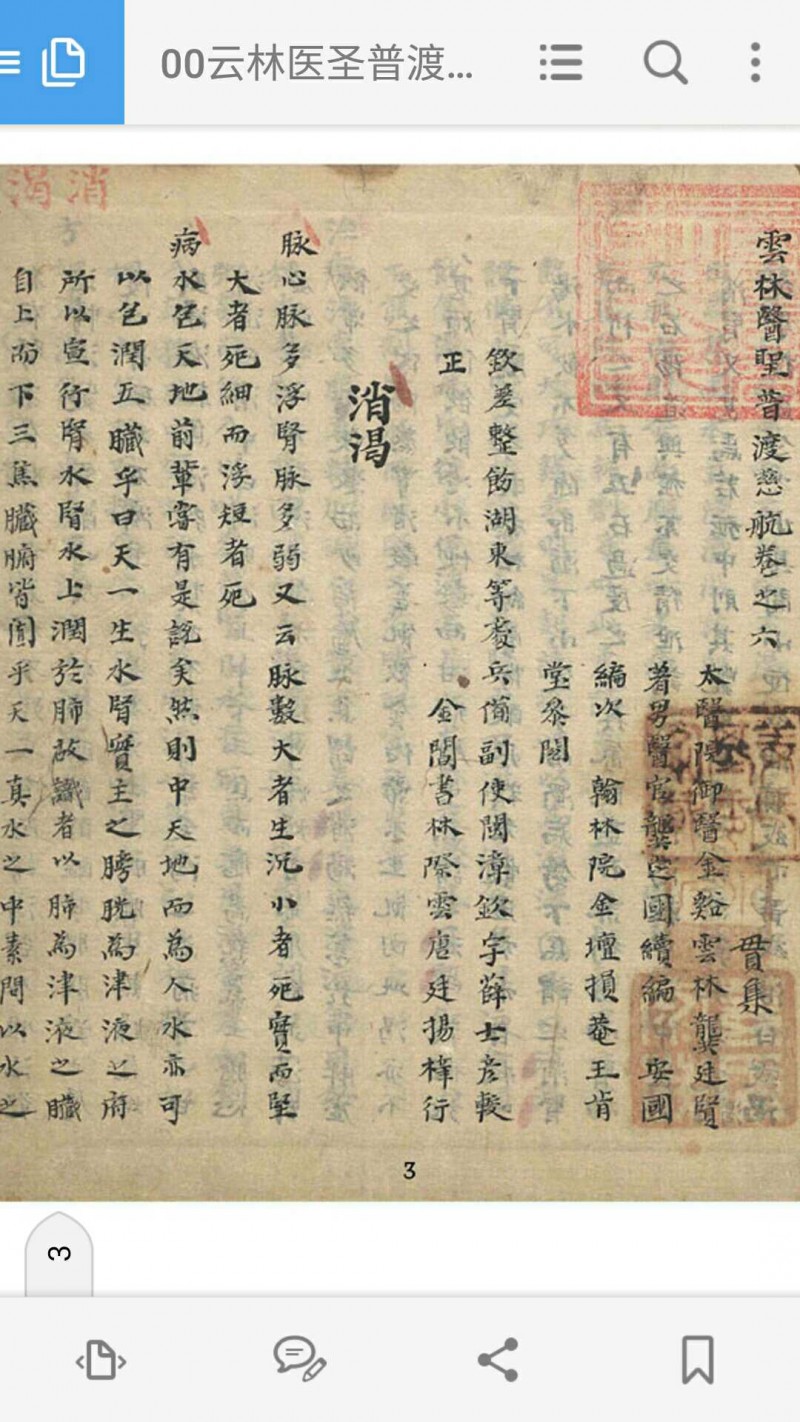 00云林医圣普渡...
消渴
雲林醫聖普渡慈航卷之六
太醫院御醫金谿雲林龔廷賢
貫集
著男醫官龔 國續編 安國
編次 翰林院金壇損菴王肯
堂叅閱
欽差整飭湖東等處兵備副使閩漳欽宇薛士彦較
正 金閶書林際雲唐廷揚梓行
消渴
脉心脉多浮腎脉多弱又云脉數大者生沉小者死實而堅
大者死細而浮短者死
病水包天地前輩嘗有是説矣然則中天地而為人水亦可
以包潤五臓乎曰天一生水腎實主之膀胱為津液之府
所以宣行腎水腎水上潤於肺故識者以肺為津液之臓
自上而下三焦臓腑皆囿乎天一真水之中素問以水之
3
3